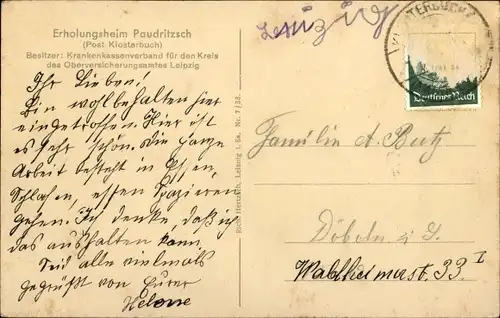 Erholungsheim Paudritzsch
(Post Klosterbuch)
Besitzer: Krankenkassenverband für den Kreis
des Oberversicherungsamtes Leipzig
Ihr Lieben!
Bin wohlbehalten hier
eingetroffen. Hier ist
es sehr schön. Die ganze
Arbeit besteht in Essen,
Schlafen, essen Spazieren
gehen. Ich denke, daß ich
das aushalten kann.
Seid alle vielmals
gegrüßt von Eurer
Helene
Nr. 7/33.
KLOSTERBUCH
Deutsches Reich
Familie A. Butz
Döbeln i. S.
Waldheimerst. 33 I